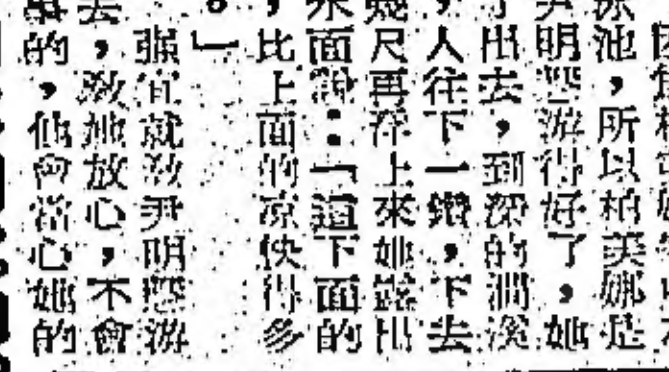 泳池，所以柏美娜是
尹明慧游得好了，她
了出去，到深的澗溪
，人往下一鑽，下去
幾尺再浮上來她露出
水面說：「這下面的
，比上面的凉快得多
。」
强宜就教尹明慧游
去，教她放心，不會
事的，他會當心她的